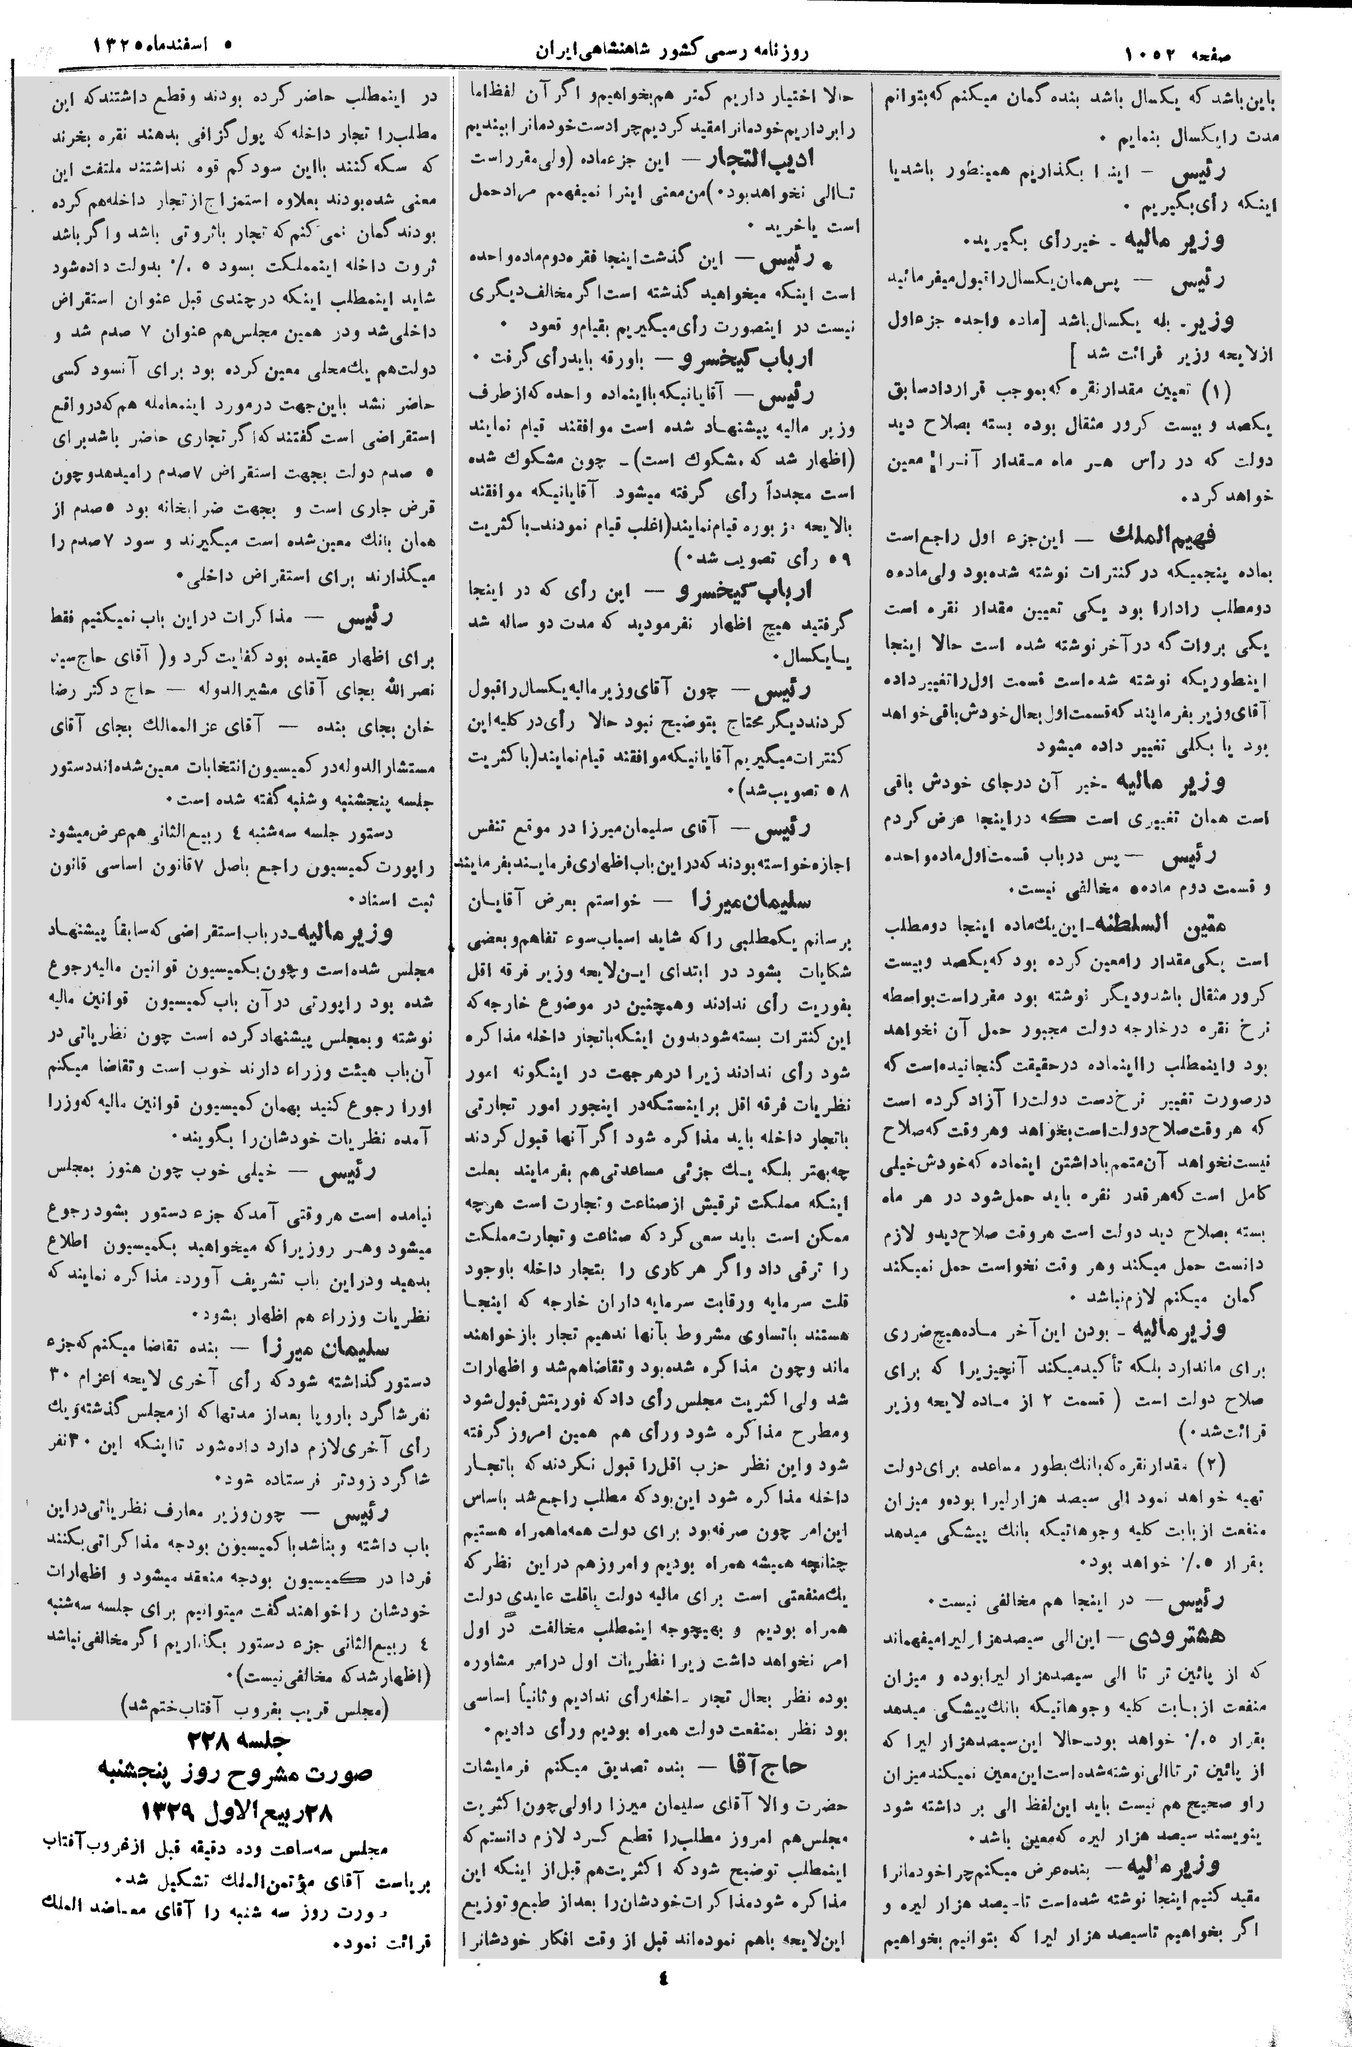 صفحه ۱۰۵۲
روزنامه رسمی کشور شاهنشاهی ایران
۵ اسفندماه ۱۳۲۵
باین باشد که یکسال باشد بنده گمان میکنم که بتوانم
مدت را یکسال بنمایم .
رئیس – اینرا بگذاریم همینطور باشد یا
اینکه رأی بگیریم .
وزیر مالیه – خیر رأی بگیرید .
رئیس – پس همان یکسال را قبول میفرمائید
وزیر – بله یکسال باشد [ ماده واحده جزء اول
از لایحه وزیر قرائت شد ]
(۱) تعیین مقدار نقره که بموجب قرارداد سابق
یکصد و بیست کرور مثقال بوده بسته بصلاح دید
دولت که در رأس هر ماه مقدار آنرا معین
خواهد کرد .
فهیم الملک – این جزء اول راجع است
بماده پنجمیکه در کنترات نوشته شده بود ولی ماده ۵
دو مطلب را دارا بود یکی تعیین مقدار نقره است
یکی بروات که در آخر نوشته شده است حالا اینجا
اینطوریکه نوشته شده است قسمت اول را تغییر داده
آقای وزیر بفرمایند که قسمت اول بحال خودش باقی خواهد
بود یا بکلی تغییر داده میشود
وزیر مالیه – خیر آن درجای خودش باقی
است همان تغییری است که در اینجا عرض کردم
رئیس – پس در باب قسمت اول ماده واحده
و قسمت دوم ماده ۵ مخالفی نیست .
متین السلطنه – این یک ماده اینجا دو مطلب
است یکی مقدار را معین کرده بود که یکصد و بیست
کرور مثقال باشد و دیگر نوشته بود مقرر است بواسطه
نرخ نقره در خارجه دولت مجبور حمل آن نخواهد
بود و اینمطلب را اینماده درحقیقت گنجانیده است که
درصورت تغییر نرخ دست دولت را آزاد کرده است
که هر وقت صلاح دولت است بخواهد و هر وقت که صلاح
نیست نخواهد آن متمم با داشتن اینماده که خودش خیلی
کامل است که هر قدر نقره باید حمل شود در هر ماه
بسته بصلاح دید دولت است هر وقت صلاح دید و لازم
دانست حمل میکند و هر وقت نخواست حمل نمیکند
گمان میکنم لازم نباشد .
وزیر مالیه – بودن این آخر ماده هیچ ضرری
برای ما ندارد بلکه تأکید میکند آنچیزیرا که برای
صلاح دولت است ( قسمت ۲ از ماده لایحه وزیر
قرائت شد . )
(۲) مقدار نقره که بانک بطور مساعده برای دولت
تهیه خواهد نمود الی سیصد هزار لیرا بوده و میزان
منفعت از بابت کلیه وجوهاتیکه بانک پیشکی میدهد
بقرار ۵٪ خواهد بود .
رئیس – در اینجا هم مخالفی نیست .
هشترودی – این الی سیصد هزار لیرا میفهماند
که از پائین تر تا الی سیصد هزار لیرا بوده و میزان
منفعت از بابت کلیه وجوهاتیکه بانک پیشکی میدهد
بقرار ۵٪ خواهد بود – حالا این سیصد هزار لیرا که
از پائین تر تا الی نوشته شده است این معین نمیکند میزان
را و صحیح هم نیست باید این لفظ الی بر داشته شود
بنویسند سیصد هزار لیره که معین باشد .
وزیر مالیه – بنده عرض میکنم چرا خودمانرا
مقید کنیم اینجا نوشته شده است تا سیصد هزار لیره و
اگر بخواهیم تا سیصد هزار لیرا که بتوانیم بخواهیم
حالا اختیار داریم کمتر هم بخواهیم و اگر آن لفظ اما
را برداریم خودمانرا مقید کردیم چرا دست خودمانرا ببندیم
ادیب التجار – این جزء ماده (ولی مقرر است
تا الی نخواهد بود .) من معنی اینرا نمیفهمم مراد حمل
است یا خرید .
رئیس – این گذشت اینجا فقره دوم ماده واحده
است اینکه میخواهید گذشته است اگر مخالف دیگری
نیست در اینصورت رأی میگیریم بقیام و قعود .
ارباب کیخسرو – با ورقه باید رأی گرفت .
رئیس – آقایانیکه با اینماده واحده که از طرف
وزیر مالیه پیشنهاد شده است موافقند قیام نمایند
(اظهار شد که مشکوک است) – چون مشکوک شده
است مجدداً رأی گرفته میشود آقایانیکه موافقند
بالایحه مزبوره قیام نمایند (اغلب قیام نمودند – باکثریت
۵۹ رأی تصویب شد .)
ارباب کیخسرو – این رأی که در اینجا
گرفتید هیچ اظهار نفرمودید که مدت دو ساله شد
یا یکسال .
رئیس – چون آقای وزیر مالیه یکسال را قبول
کردند دیگر محتاج بتوضیح نبود حالا رأی در کلیه این
کنترات میگیریم آقایانیکه موافقند قیام نمایند (باکثریت
۵۸ تصویب شد) .
رئیس – آقای سلیمان میرزا در موقع تنفس
اجازه خواسته بودند که در این باب اظهاری فرمایند بفرمایند
سلیمان میرزا – خواستم بعرض آقایان
برسانم یکمطلبی را که شاید اسباب سوء تفاهم و بعضی
شکایات بشود در ابتدای این لایحه وزیر فرقه اقل
بفوریت رأی ندادند و همچنین در موضوع خارجه که
این کنترات بسته شود بدون اینکه با تجار داخله مذاکره
شود رأی ندادند زیرا در هر جهت در اینگونه امور
نظریات فرقه اقل بر اینستکه در اینجور امور تجارتی
با تجار داخله باید مذاکره شود اگر آنها قبول کردند
چه بهتر بلکه یک جزئی مساعدتی هم بفرمایند بعلت
اینکه مملکت ترقیش از صناعت و تجارت است هرچه
ممکن است باید سعی کرد که صناعت و تجارت مملکت
را ترقی داد و اگر هر کاری را بتجار داخله باوجود
قلت سرمایه و رقابت سرمایه داران خارجه که اینجا
هستند باتساوی مشروط بآنها ندهیم تجار باز خواهند
ماند و چون مذاکره شده بود و تقاضا هم شد و اظهارات
شد ولی اکثریت مجلس رأی داد که فوریتش قبول شود
و مطرح مذاکره شود و رأی هم همین امروز گرفته
شود و این نظر حزب اقل را قبول نکردند که با تجار
داخله مذاکره شود این بود که مطلب راجع شد باساس
این امر چون صرفه بود برای دولت همه ما همراه هستیم
چنانچه همیشه همراه بودیم و امروزهم در این نظر که
یک منفعتی است برای مالیه دولت باقلت عایدی دولت
همراه بودیم و بهیچوجه اینمطلب مخالفت در اول
امر نخواهد داشت زیرا نظریات اول درامر مشاوره
بوده نظر بحال تجار داخله رأی ندادیم و ثانیاً اساسی
بود نظر بمنفعت دولت همراه بودیم و رأی دادیم .
حاج آقا – بنده تصدیق میکنم فرمایشات
حضرت والا آقای سلیمان میرزا را ولی چون اکثریت
مجلس هم امروز مطلب را قطع کرد لازم دانستم که
اینمطلب توضیح شود که اکثریت هم قبل از اینکه این
مذاکره شود مذاکرات خودشان را بعد از طبع و توزیع
این لایحه باهم نموده اند قبل از وقت افکار خودشانرا
در اینمطلب حاضر کرده بودند و قطع داشتند که این
مطلب را تجار داخله که پول گزافی بدهند نقره بخرند
که سکه کنند با این سود کم قوه نداشتند ملتفت این
معنی شده بودند بعلاوه استمزاج از تجار داخله هم کرده
بودند گمان نمی کنم که تجار با ثروتی باشد و اگر باشد
ثروت داخله اینمملکت بسود ۵٪ بدولت داده شود
شاید اینمطلب اینکه در چندی قبل عنوان استقراض
داخلی شد و در همین مجلس هم عنوان ۷ صدم شد و
دولت هم یک محلی معین کرده بود برای آنسود کسی
حاضر نشد باین جهت درمورد اینمعامله هم که درواقع
استقراضی است گفتند که اگر تجاری حاضر باشد برای
۵ صدم دولت بجهت استقراض ۷ صدم را میدهد و چون
قرض جاری است و بجهت ضرابخانه بود ۵ صدم از
همان بانک معین شده است میگیرند و سود ۷ صدم را
میگذارند برای استقراض داخلی .
رئیس – مذاکرات در این باب نمیکنیم فقط
برای اظهار عقیده بود کفایت کرد و ( آقای حاج سید
نصر الله بجای آقای مشیر الدوله – حاج دکتر رضا
خان بجای بنده – آقای عز الممالک بجای آقای
مستشار الدوله در کمیسیون انتخابات معین شده اند دستور
جلسه پنجشنبه و شنبه گفته شده است .
دستور جلسه سه شنبه ٤ ربیع الثانی هم عرض میشود
راپورت کمیسیون راجع باصل ۷ قانون اساسی قانون
ثبت اسناد .
وزیر مالیه – در باب استقراضی که سابقاً پیشنهاد
مجلس شده است و چون بکمیسیون قوانین مالیه رجوع
شده بود راپورتی در آن باب کمیسیون قوانین مالیه
نوشته و بمجلس پیشنهاد کرده است چون نظریاتی در
آن باب هیئت وزراء دارند خوب است و تقاضا میکنم
اورا رجوع کنید بهمان کمیسیون قوانین مالیه که وزرا
آمده نظریات خودشان را بگویند .
رئیس – خیلی خوب چون هنوز بمجلس
نیامده است هر وقتی آمد که جزء دستور بشود رجوع
میشود و هر روزیرا که میخواهید بکمیسیون اطلاع
بدهید و در این باب تشریف آورده مذاکره نمایند که
نظریات وزراء هم اظهار بشود .
سلیمان میرزا – بنده تقاضا میکنم که جزء
دستور گذاشته شود که رأی آخری لایحه اعزام ۳۰
نفر شاگرد باروپا بعد از مدتها که از مجلس گذشته و یک
رأی آخری لازم دارد داده شود تا اینکه این ۳۰ نفر
شاگرد زودتر فرستاده شود .
رئیس – چون وزیر معارف نظریاتی در این
باب داشته و بناشد با کمیسیون بودجه مذاکراتی بکنند
فردا در کمیسیون بودجه منعقد میشود و اظهارات
خودشان را خواهند گفت میتوانیم برای جلسه سه شنبه
٤ ربیع الثانی جزء دستور بگذاریم اگر مخالفی نباشد
(اظهار شد که مخالفی نیست) .
(مجلس قریب بغروب آفتاب ختم شد)
جلسه ۲۲۸
صورت مشروح روز پنجشنبه
۲۸ ربیع الاول ۱۳۲۹
مجلس سه ساعت و ده دقیقه قبل از غروب آفتاب
بریاست آقای مؤتمن الملک تشکیل شد .
صورت روز سه شنبه را آقای معاضد الملک
قرائت نمود .
٤